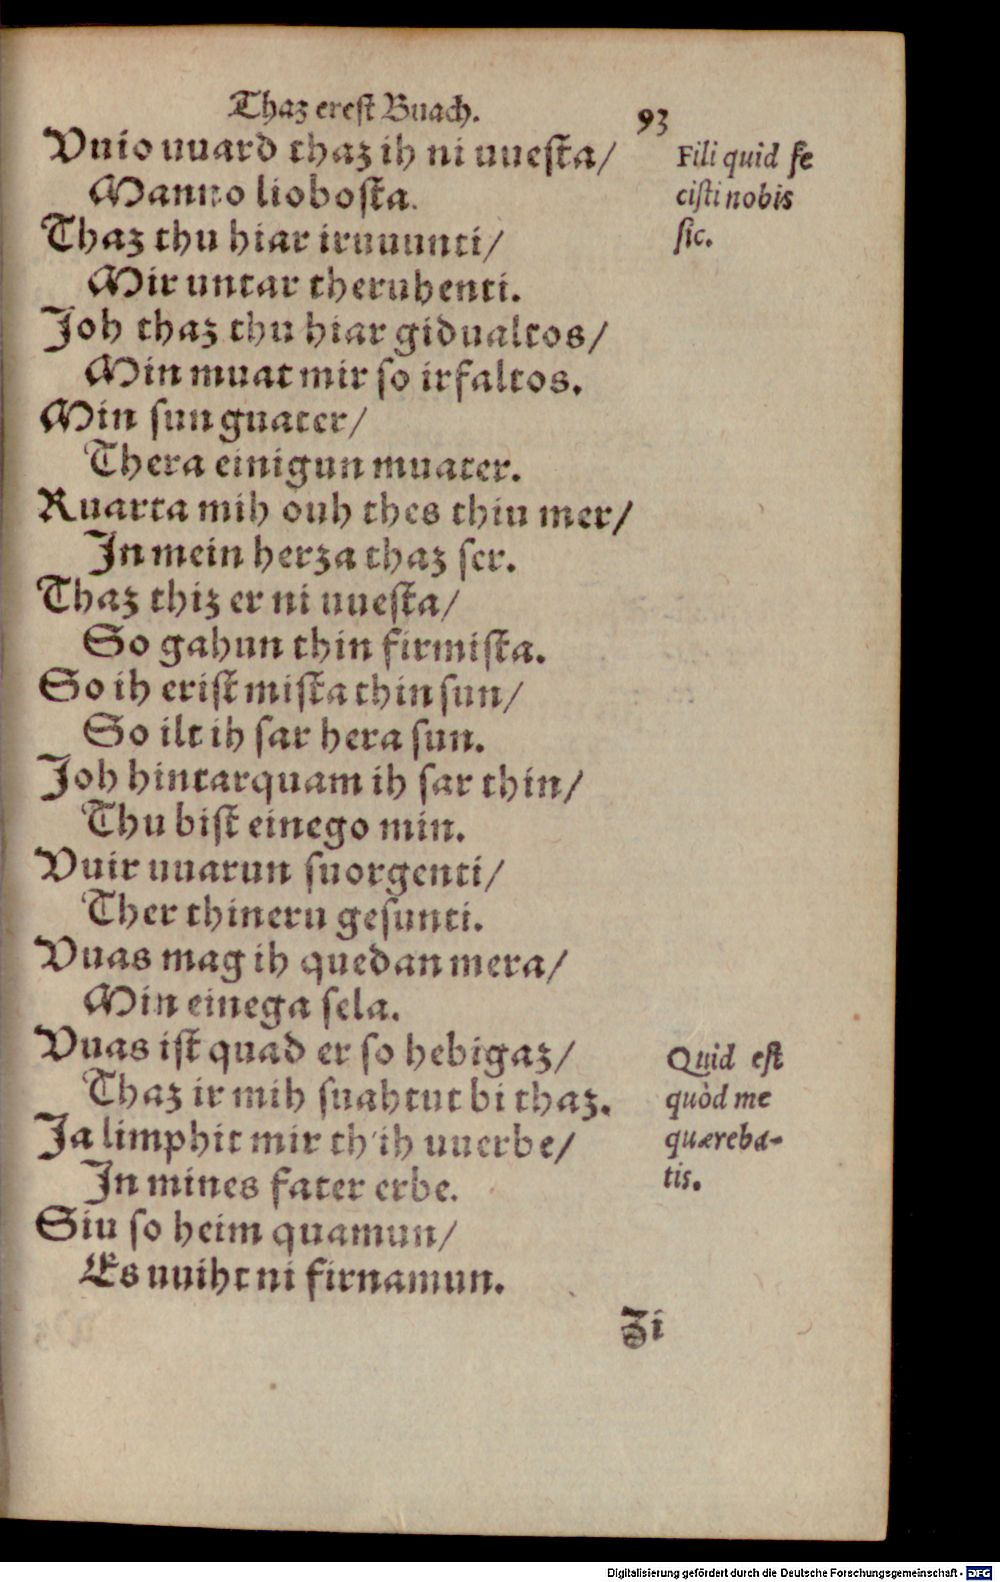 Thaz erest Buach. 93
Vuio uuard thaz ih ni uuesta/
Manno liobosta.
Thaz thu hiar iruuunti/
Mir untar theruhenti.
Joh thaz thu hiar gidualtos/
Min muat mir so irfaltos.
Min sun guater/
Thera einigun muater.
Ruarta mih ouh thes thiu mer/
In mein herza thaz ser.
Thaz thiz er ni uuesta/
So gahun thin firmista.
So ih erist mista thin sun/
So ilt ih sar hera sun.
Joh hintarquam ih sar thin/
Thu bist einego min.
Vuir uuarun suorgenti/
Ther thineru gesunti.
Vuas mag ih quedan mera/
Min einega sela.
Vuas ist quad er so hebigaz/
Thaz ir mih suahtut bi thaz.
Ja limphit mir th'ih uuerbe/
In mines fater erbe.
Siu so heim quamun/
Es uuiht ni firnamun.
Zi
Fili quid fe
cisti nobis
sic.
Quid est
quòd me
quæreba-
tis.
Digitalisierung gefördert durch die Deutsche Forschungsgemeinschaft - DFG